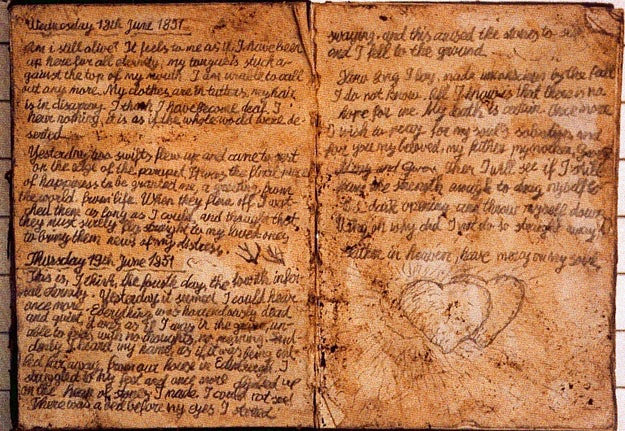 Wednesday 18th June 1851
Am i still alive? It feels to me as if I have been
up here for all eternity, my tongue is stuck a-
gainst the top of my mouth I am unable to call
out any more. My clothes are in tatters, my hair
is in disarray. I think I have become deaf I
hear nothing, it is as if the whole world were de-
serted.
Yesterday two swifts flew up and came to rest
on the edge of the parapet. It was the final piece
of happiness to be granted me, a greeting from
the world, from life. When they flew off I wat-
ched them as long as I could, and thought that
they must surely fly straight to my loved ones
to bring them news of my distress.
Thursday 19th June 1851
This is, I think, the fourth day, the fourth infer-
nal eternity. Yesterday it seemed I could hear
once more. Everything was horrendously dead
and quiet. It was as if I was in the grave, un-
able to rest, with no thoughts, no meaning. And
dimly I heard my name, as if it was being cal-
led far away, from our house in Edinburgh. I
struggled to my feet and once more climbed up
on the heap of stones I made. I could not see!
There was a red before my eyes, I stood
swaying, and this caused the stones to slip
and I fell to the ground.
How long I lay, made unconscious by the fall
I do not know. All I know is that there is no
hope for me. My death is certain. Once more
I wish to pray for my soul's salvation, and
for you my beloved, my father my mother,
and. Then I will see if I still
have the strength enough to drag myself to
the dark opening and throw myself down
Why, oh why did I not do so straight away?
Father in heaven, have mercy on my soul.